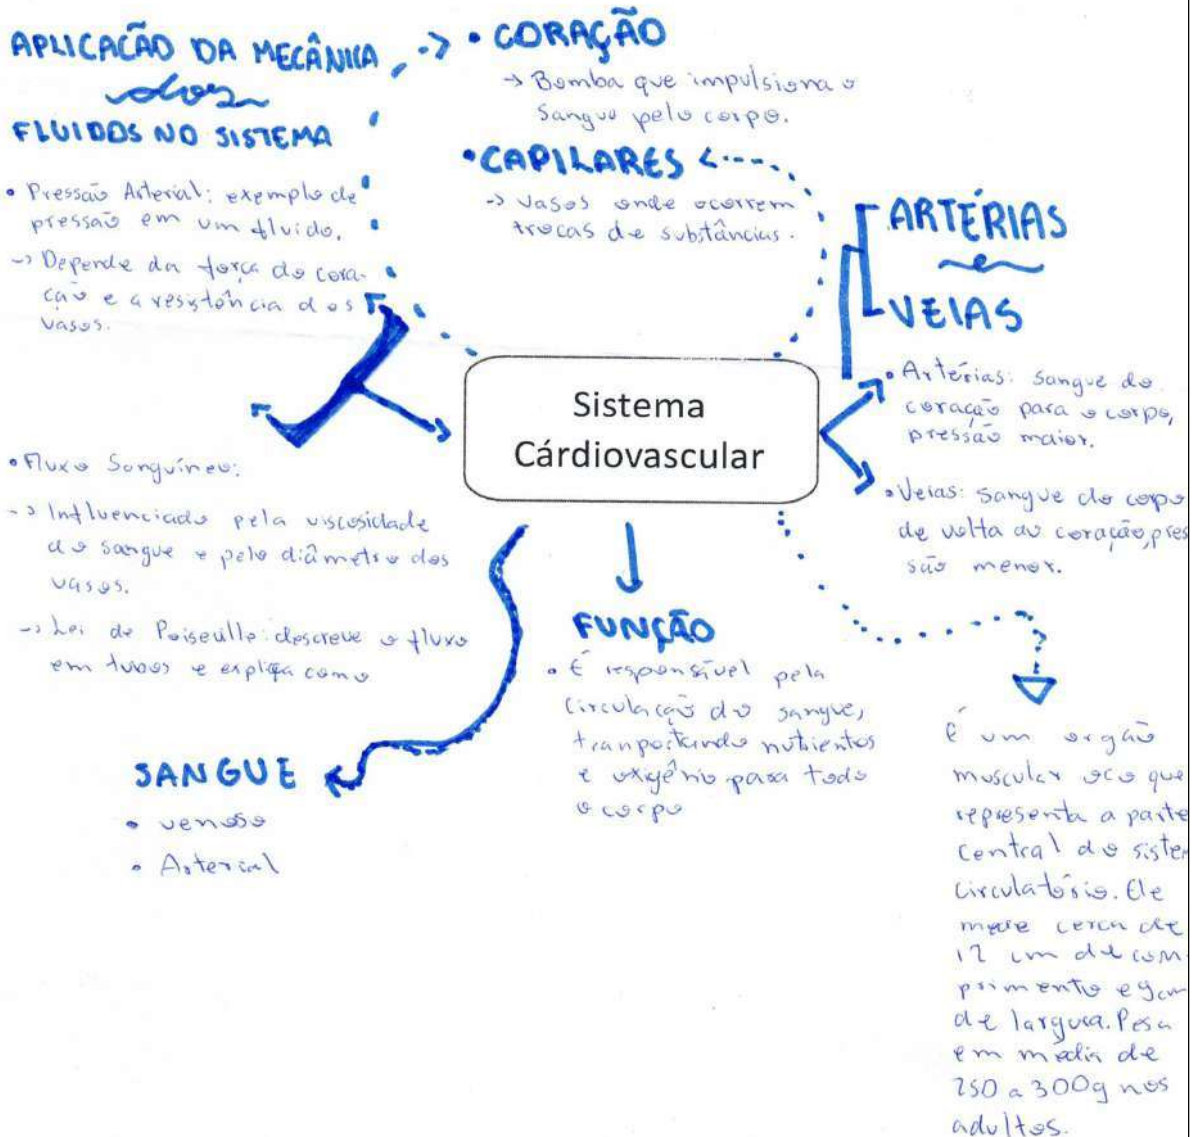 APLICACÃO DA MECÂNICA
dos
FLUIDOS NO SISTEMA
• Pressão Arterial: exemplo de
pressão em um fluido.
-> Depende da força do cora-
ção e a resistência dos
vasos.
• Fluxo Sanguíneo:
-> Influenciado pela viscosidade
do sangue e pelo diâmetro dos
vasos.
-> Lei de Poiseuille: descreve o fluxo
em tubos e explica como
SANGUE
• venoso
• Arterial
• CORAÇÃO
-> Bomba que impulsiona o
Sangue pelo corpo.
• CAPILARES
-> Vasos onde ocorrem
trocas de substâncias.
Sistema
Cárdiovascular
FUNÇÃO
• É responsável pela
circulação do sangue,
tranportando nutrientos
e oxigênio para todo
o corpo
ARTÉRIAS
e
VEIAS
• Artérias: sangue do
coração para o corpo,
pressão maior.
• Veias: sangue do corpo
de volta ao coração, pres
são menor.
É um orgão
muscular oco que
representa a parte
central do siste
circulatório. Ele
mede cerca de
12 cm de com
primento e 9cm
de largura. Pesa
em média de
250 a 300g nos
adultos.